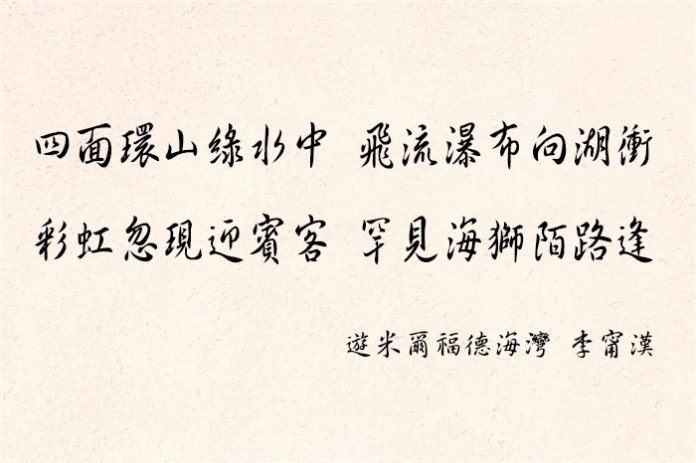 四面環山綠水中 飛流瀑布向湖衝
彩虹忽現迎賓客 罕見海獅陌路逢
遊米爾福德海灣 李甯漢